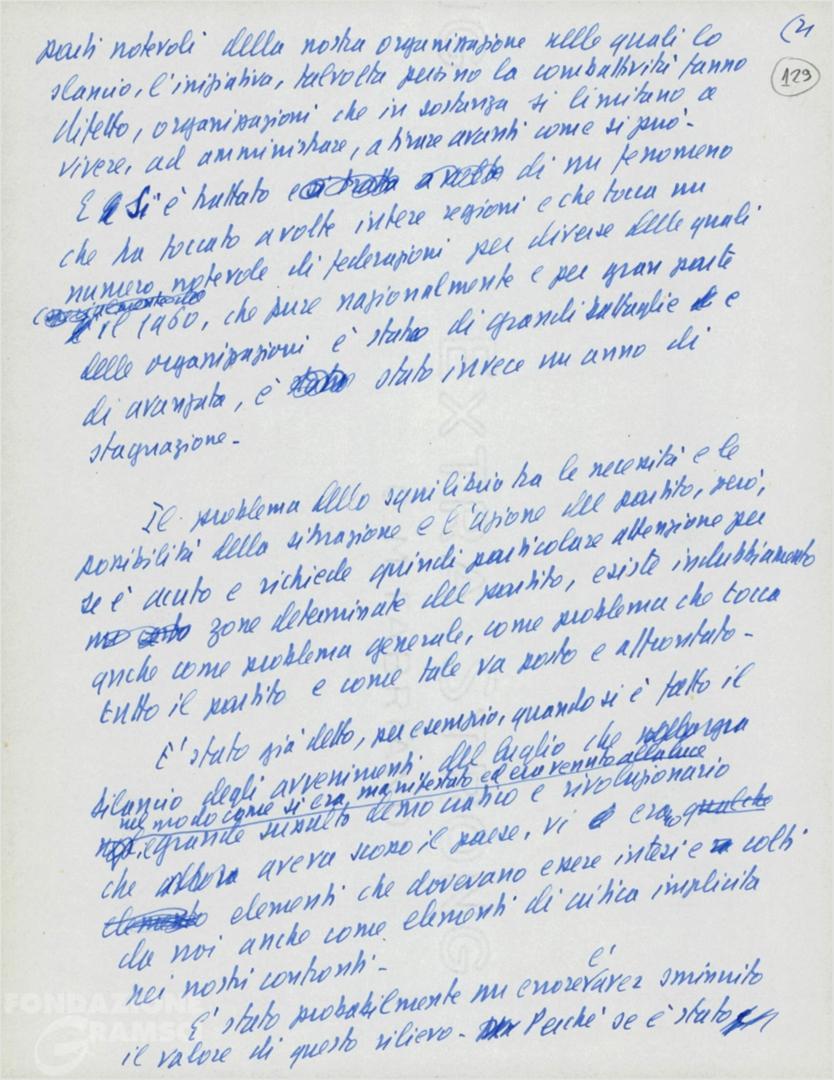 (2
129
parti notevoli della nostra organizzazione nelle quali lo
slancio, l'iniziativa, talvolta persino la combattività fanno
difetto, organizzazioni che in sostanza si limitano a
vivere, ad amministrare, a tirare avanti come si può.
E si è trattato e si tratta a volte di un fenomeno
che ha toccato a volte intere regioni e che tocca un
numero notevole di federazioni per diverse delle quali
il 1960, che pure nazionalmente e per gran parte
delle organizzazioni è stato di grandi battaglie e
di avanzata, è stato stato invece un anno di
stagnazione -
Il problema dello squilibrio tra le necessità e le
possibilità della situazione e l'azione del partito, però,
se è acuto e richiede quindi particolare attenzione per
zone determinate del partito, esiste indubbiamente
anche come problema generale, come problema che tocca
tutto il partito e come tale va posto e affrontato -
E' stato già detto, per esempio, quando si è fatto il
bilancio degli avvenimenti del luglio che
nel modo come si era manifestato ed era venuto alla luce
il grande sussulto democratico e rivoluzionario
che allora aveva scosso il paese, vi erano qualche
elemento elementi che dovevano essere intesi e colti
da noi anche come elementi di critica implicita
nei nostri confronti -
E' stato probabilmente un errore l'aver sminuito
il valore di questo rilievo - Perché se è stato
FONDAZIONE
GRAMSCI